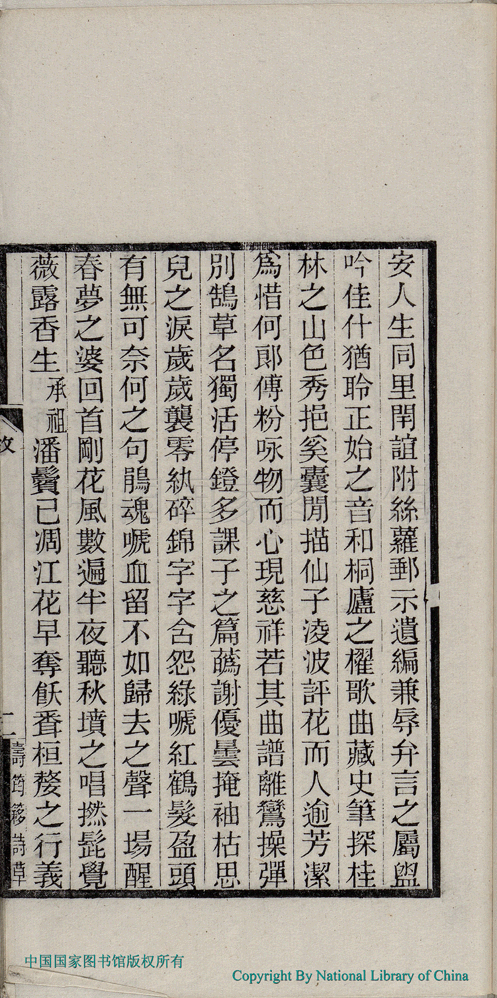 安人生同里閈誼附絲蘿郵示遺編兼辱弁言之屬盥
吟佳什猶聆正始之音和桐廬之櫂歌曲藏史筆探桂
林之山色秀挹奚囊閒描仙子淩波評花而人逾芳潔
爲惜何郞傅粉咏物而心現慈祥若其曲譜離鸞操彈
別鵠草名獨活停鐙多課子之篇蕅謝優曇掩袖枯思
兒之淚歲歲襲零紈碎錦字字含怨綠嗁紅鶴髮盈頭
有無可奈何之句鵑魂嗁血留不如歸去之聲一場醒
春夢之婆回首剛花風數遍半夜聽秋墳之唱撚髭覺
薇露香生承祖潘鬢已凋江花早奪飫聞桓嫠之行義
二
壽筠簃詩草
中国国家图书馆版权所有
Copyright By National Library of China